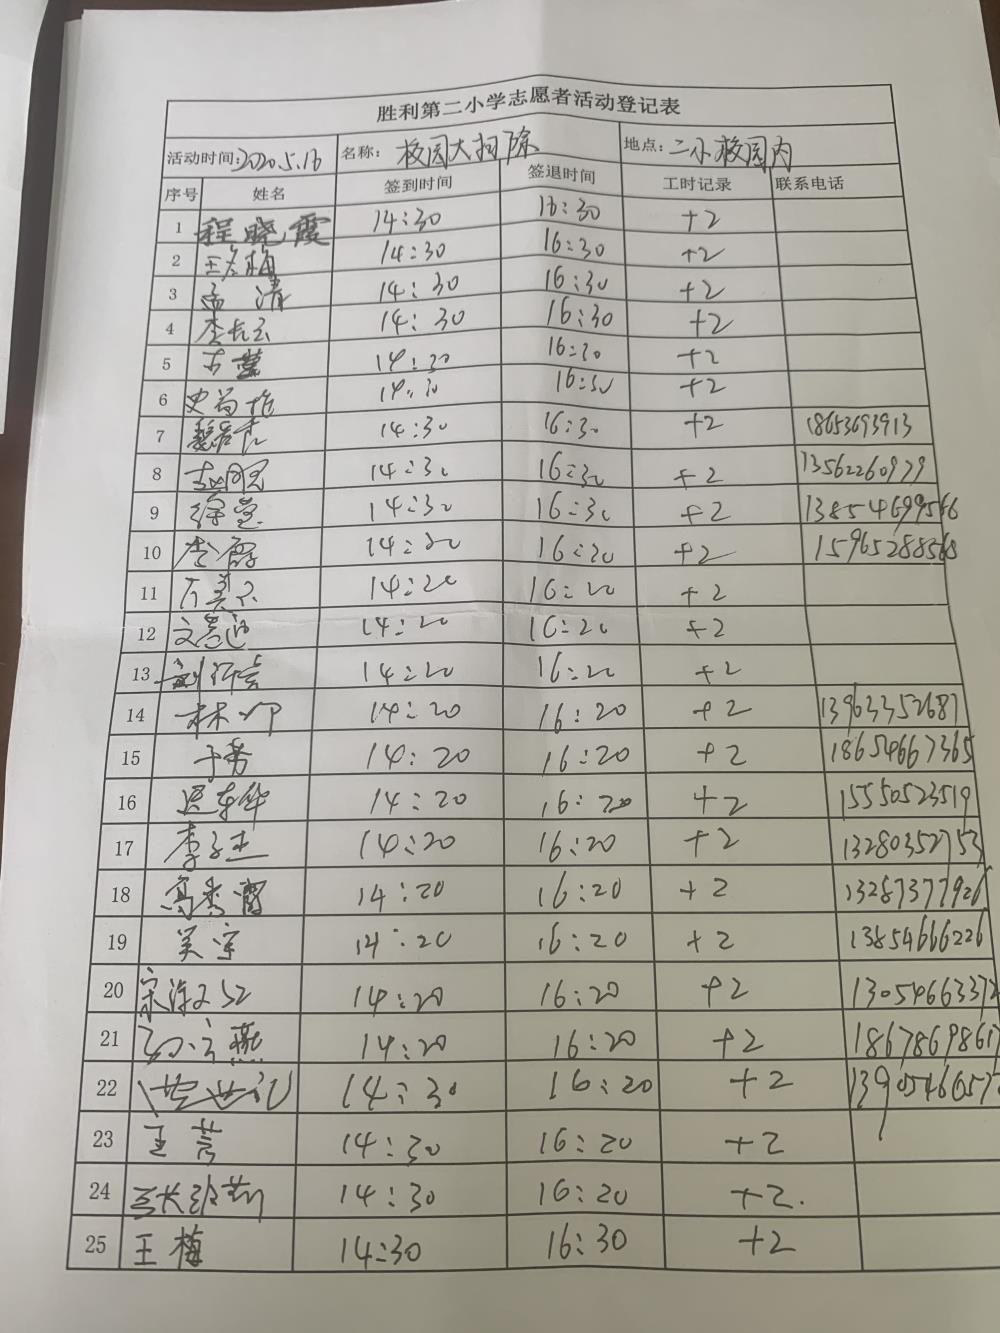 胜利第二小学志愿者活动登记表
活动时间:2020.5.16 名称: 校园大扫除 地点: 二小校园内
序号 姓名 签到时间 签退时间 工时记录 联系电话
1 程晓霞 14:30 16:30 +2
2 王冬梅 14:30 16:30 +2
3 孟清 14:30 16:30 +2
4 李长云 14:30 16:30 +2
5 14:30 16:30 +2
6 14:30 16:30 +2
7 14:30 16:30 +2 18653693913
8 14:30 16:30 +2 13562260979
9 徐莹 14:30 16:30 +2 13854699566
10 李霞 14:30 16:30 +2 15965288568
11 14:20 16:20 +2
12 14:20 16:20 +2
13 14:20 16:20 +2
14 14:20 16:20 +2 13963352687
15 于芳 14:20 16:20 +2 18654667365
16 14:20 16:20 +2 15550523519
17 14:20 16:20 +2 13280352753
18 高秀霞 14:20 16:20 +2 13287377926
19 吴宇 14:20 16:20 +2 13854666226
20 14:20 16:20 +2 1305466337
21 14:20 16:20 +2 1867869861
22 14:30 16:20 +2 1390546057
23 王芳 14:30 16:20 +2
24 14:30 16:20 +2.
25 王梅 14:30 16:30 +2